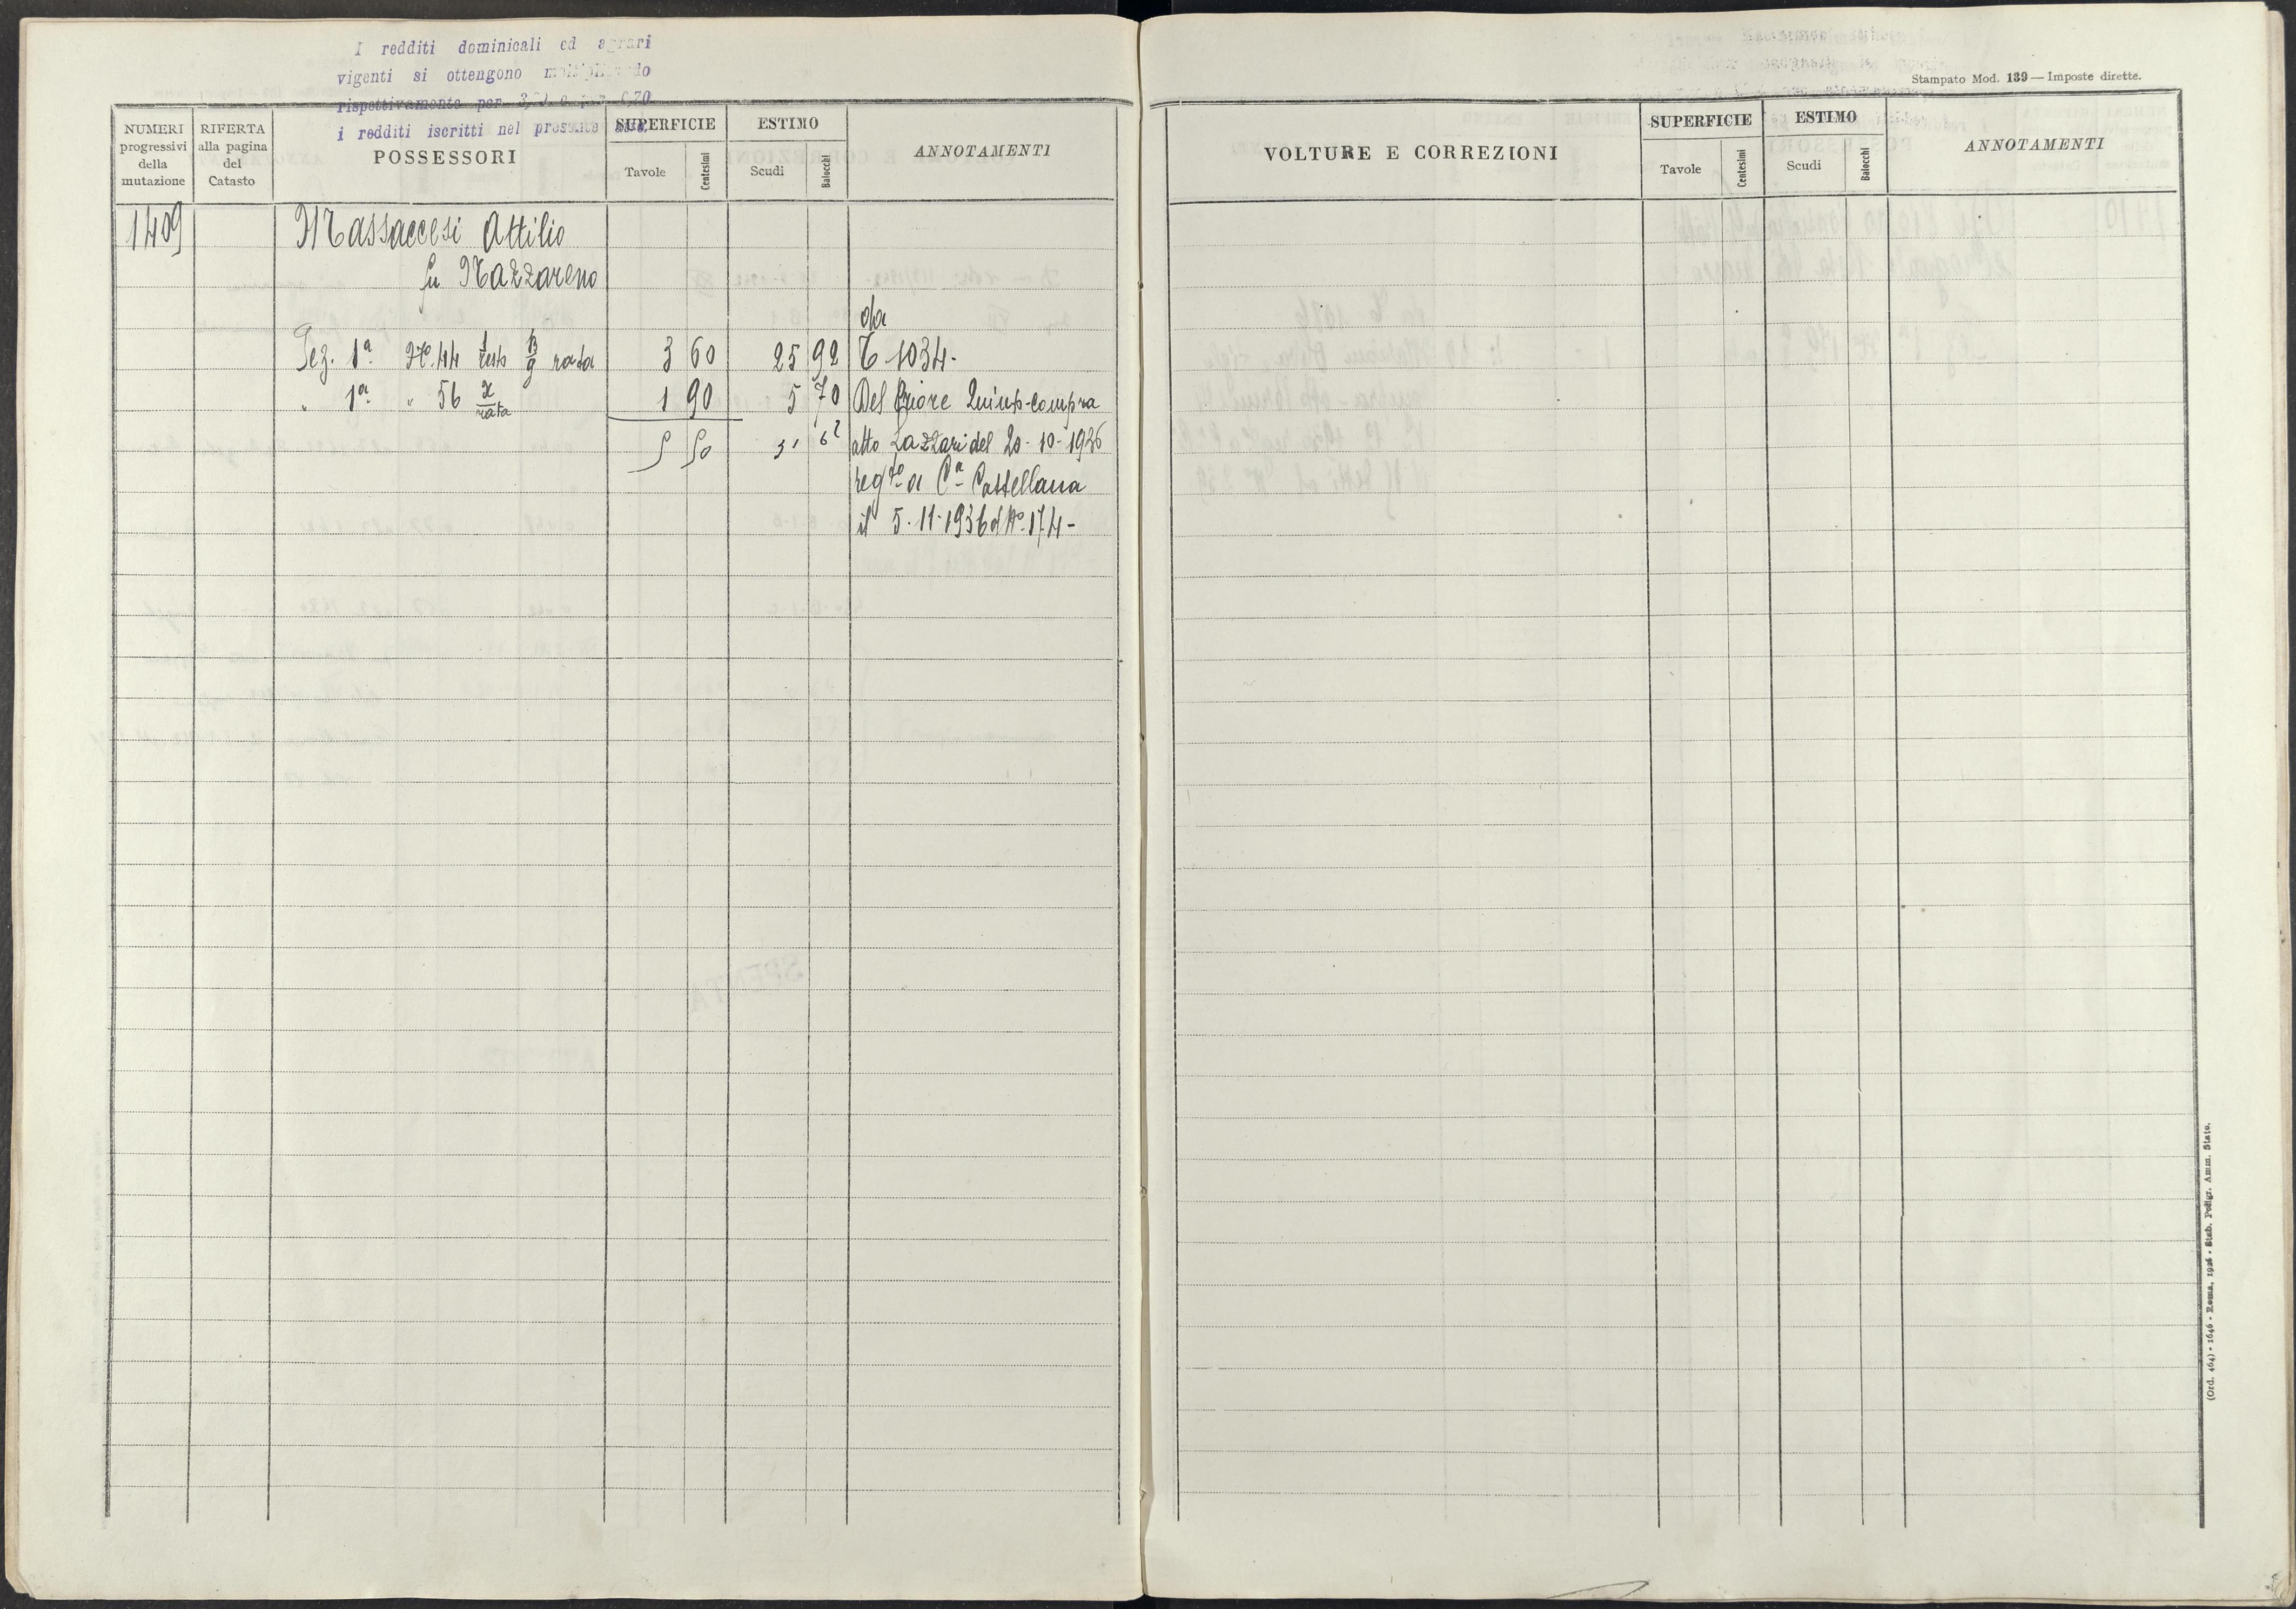 I redditi dominicali ed agrari
vigenti si ottengono moltiplicando
rispettivamente per e per
i redditi iscritti nel presente
Stampato Mod. 139 — Imposte dirette.
NUMERI progressivi della mutazione
RIFERTA alla pagina del Catasto
POSSESSORI
SUPERFICIE
Tavole
Centesimi
ESTIMO
Scudi
Baiocchi
ANNOTAMENTI
VOLTURE E CORREZIONI
SUPERFICIE
Tavole
Centesimi
ESTIMO
Scudi
Baiocchi
ANNOTAMENTI
1409 Massaccesi Attilio
fu Nazzareno
da
Sez. 1ª N.º 44 rata 3 60 25 92 T 1034.
" 1ª " 56 rata 1 90 5 70 Del Fiore compra
5 50 31 62 atto Lazzari del 20-10-1936
regto a Cª Castellana
il 5-11-1936 al Nº 174-
(Ord. 464) - 1646 - Roma, 1926 - Stab. Poligr. Amm. Stato.